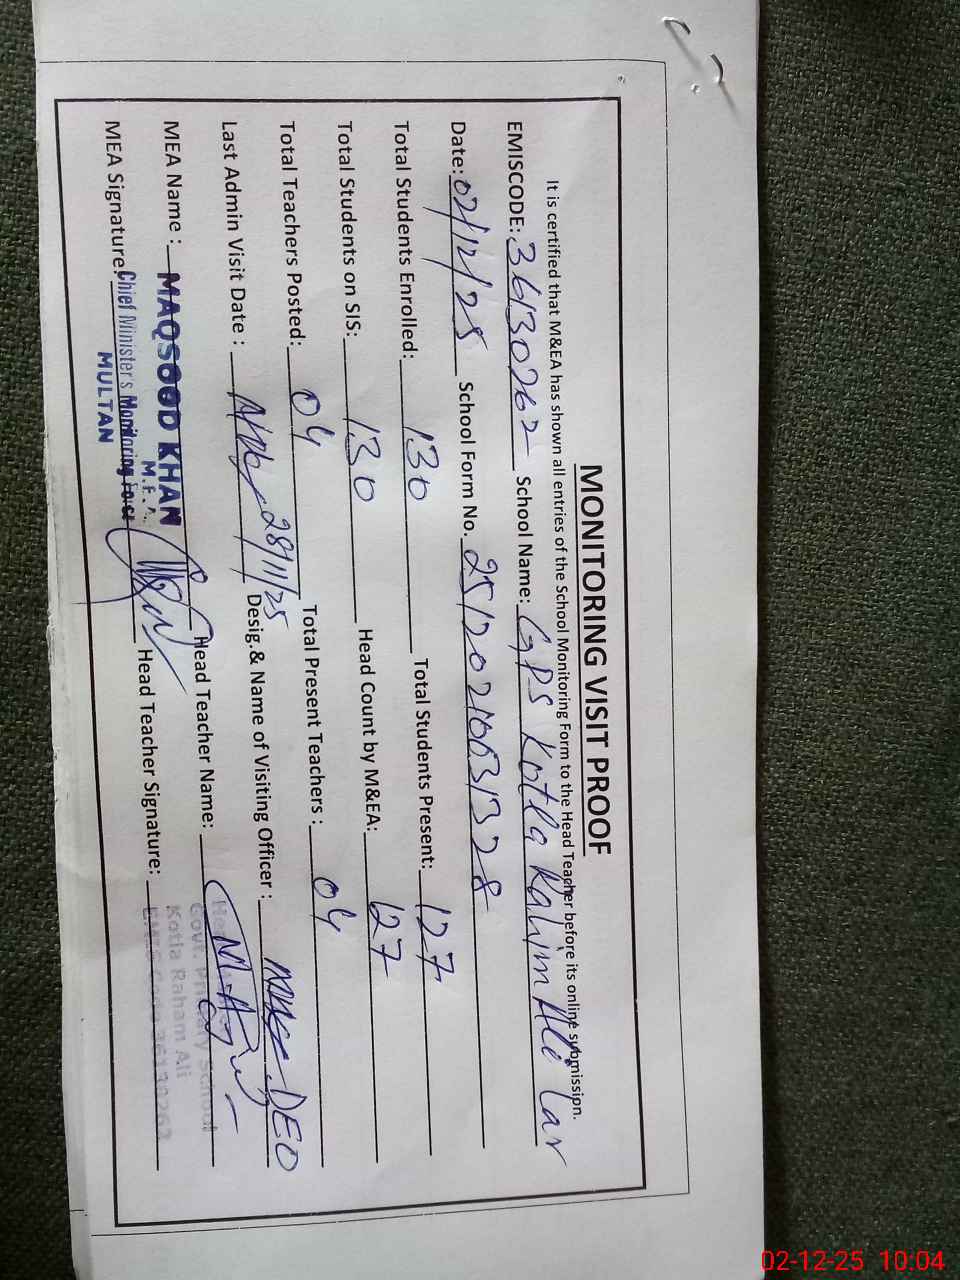 MONITORING VISIT PROOF
It is certified that M&EA has shown all entries of the School Monitoring Form to the Head Teacher before its online submission.
EMISCODE: 36130262 School Name: GPS Kotla Rahim Ali Lar
Date: 02/12/25 School Form No.
Total Students Enrolled: 130 Total Students Present: 127
Total Students on SIS: 130 Head Count by M&EA: 127
Total Teachers Posted: 04 Total Present Teachers : 04
Last Admin Visit Date : 28/11/25 Desig.& Name of Visiting Officer : DEO
MEA Name : MAQSOOD KHAN Head Teacher Name:
M.E.A.
MEA Signature: Chief Minister's Monitoring Force Head Teacher Signature:
MULTAN
Govt. Primary School
Kotla Raham Ali
EMIS Code 36130262
02-12-25 10:04